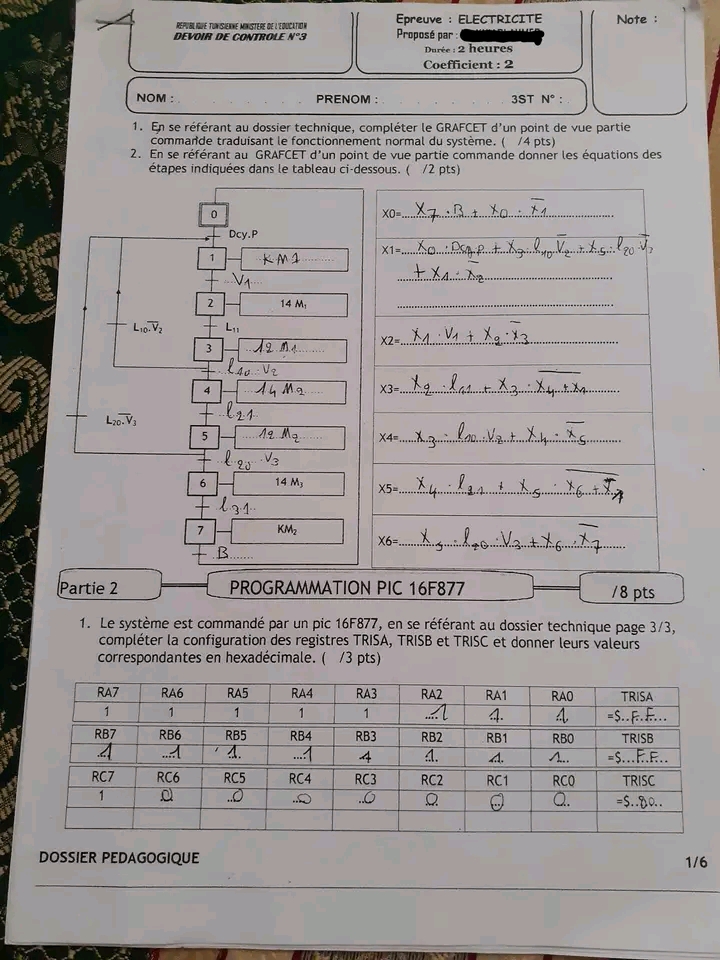 REPUBLIQUE TUNISIENNE MINISTERE DE L'EDUCATION
DEVOIR DE CONTROLE N°3
Epreuve : ELECTRICITE
Proposé par :
Durée : 2 heures
Coefficient : 2
Note :
NOM : . . . . . . PRENOM : . . . . . . 3ST N° : .
1. En se référant au dossier technique, compléter le GRAFCET d'un point de vue partie
commande traduisant le fonctionnement normal du système. ( /4 pts)
2. En se référant au GRAFCET d'un point de vue partie commande donner les équations des
étapes indiquées dans le tableau ci-dessous. ( /2 pts)
0
Dcy.P
1 KM1
V1
2 14 M₁
L₁₁
3 12 M1
l10 V2
4 14 M2
l21
5 12 M2
l20 V3
6 14 M₃
l31
7 KM₂
B
L₁₀.V̅₂
L₂₀.V̅₃
X0= X7 . B + X0 . X̅1
X1= X0 . Dcy.p + X3 . l10 V̅2 + X5 . l20 . V̅3
+ X1 . X̅2
X2= X1 . V1 + X2 . X̅3
X3= X2 . l11 + X3 . X̅4̅ ̅+̅ ̅X̅1̅
X4= X3 . l10 . V2 + X4 . X̅5
X5= X4 . l21 + X5 . X̅6̅ ̅+̅ ̅X̅1̅
X6= X5 . l20 . V3 + X6 . X̅7
Partie 2 PROGRAMMATION PIC 16F877 /8 pts
1. Le système est commandé par un pic 16F877, en se référant au dossier technique page 3/3,
compléter la configuration des registres TRISA, TRISB et TRISC et donner leurs valeurs
correspondantes en hexadécimale. ( /3 pts)
RA7 RA6 RA5 RA4 RA3 RA2 RA1 RA0 TRISA
1 1 1 1 1 1 1 1 =$..F.F...
RB7 RB6 RB5 RB4 RB3 RB2 RB1 RB0 TRISB
1 1 1 1 1 1 1 1 =$...F.F...
RC7 RC6 RC5 RC4 RC3 RC2 RC1 RC0 TRISC
1 0 0 0 0 0 0 0 =$..80..
DOSSIER PEDAGOGIQUE
1/6